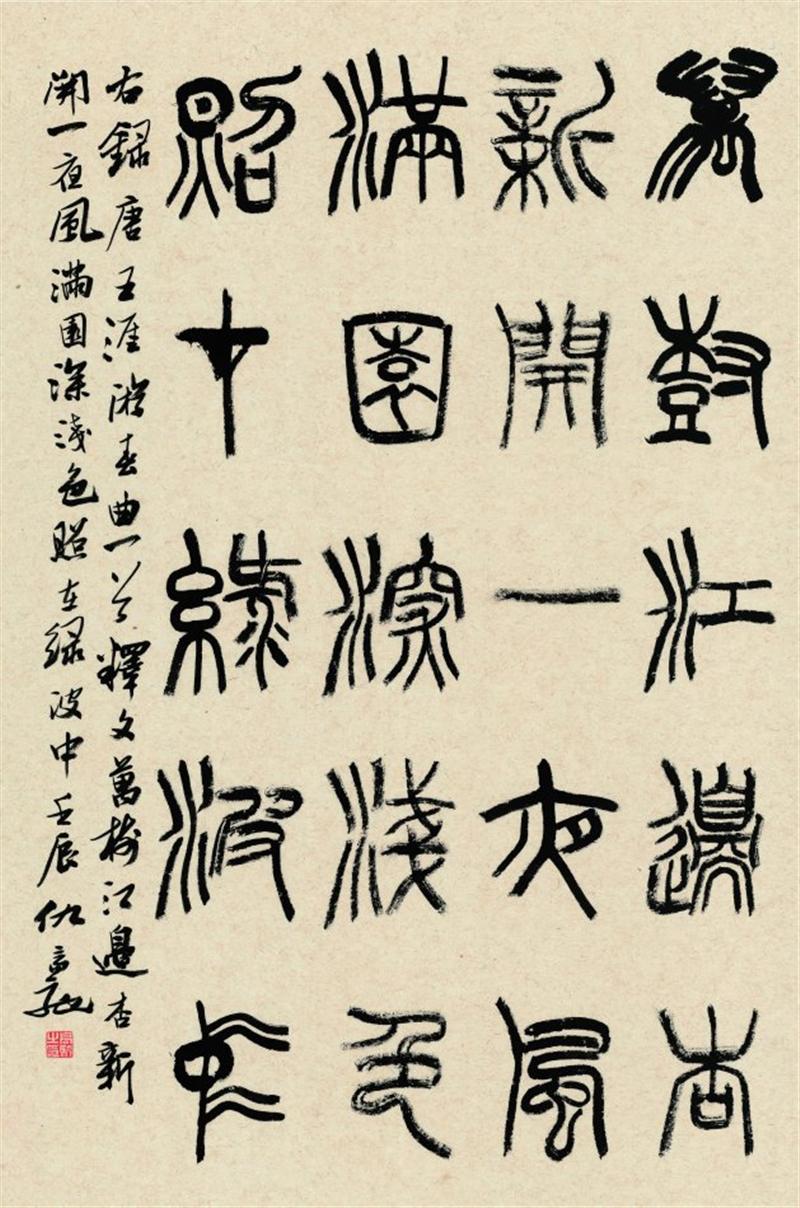 萬樹江邊杏
新開一夜風
滿園深淺色
照在綠波中
右錄唐王涯游春曲一首釋文萬樹江邊杏新
開一夜風滿園深淺色照在綠波中壬辰仇高馳